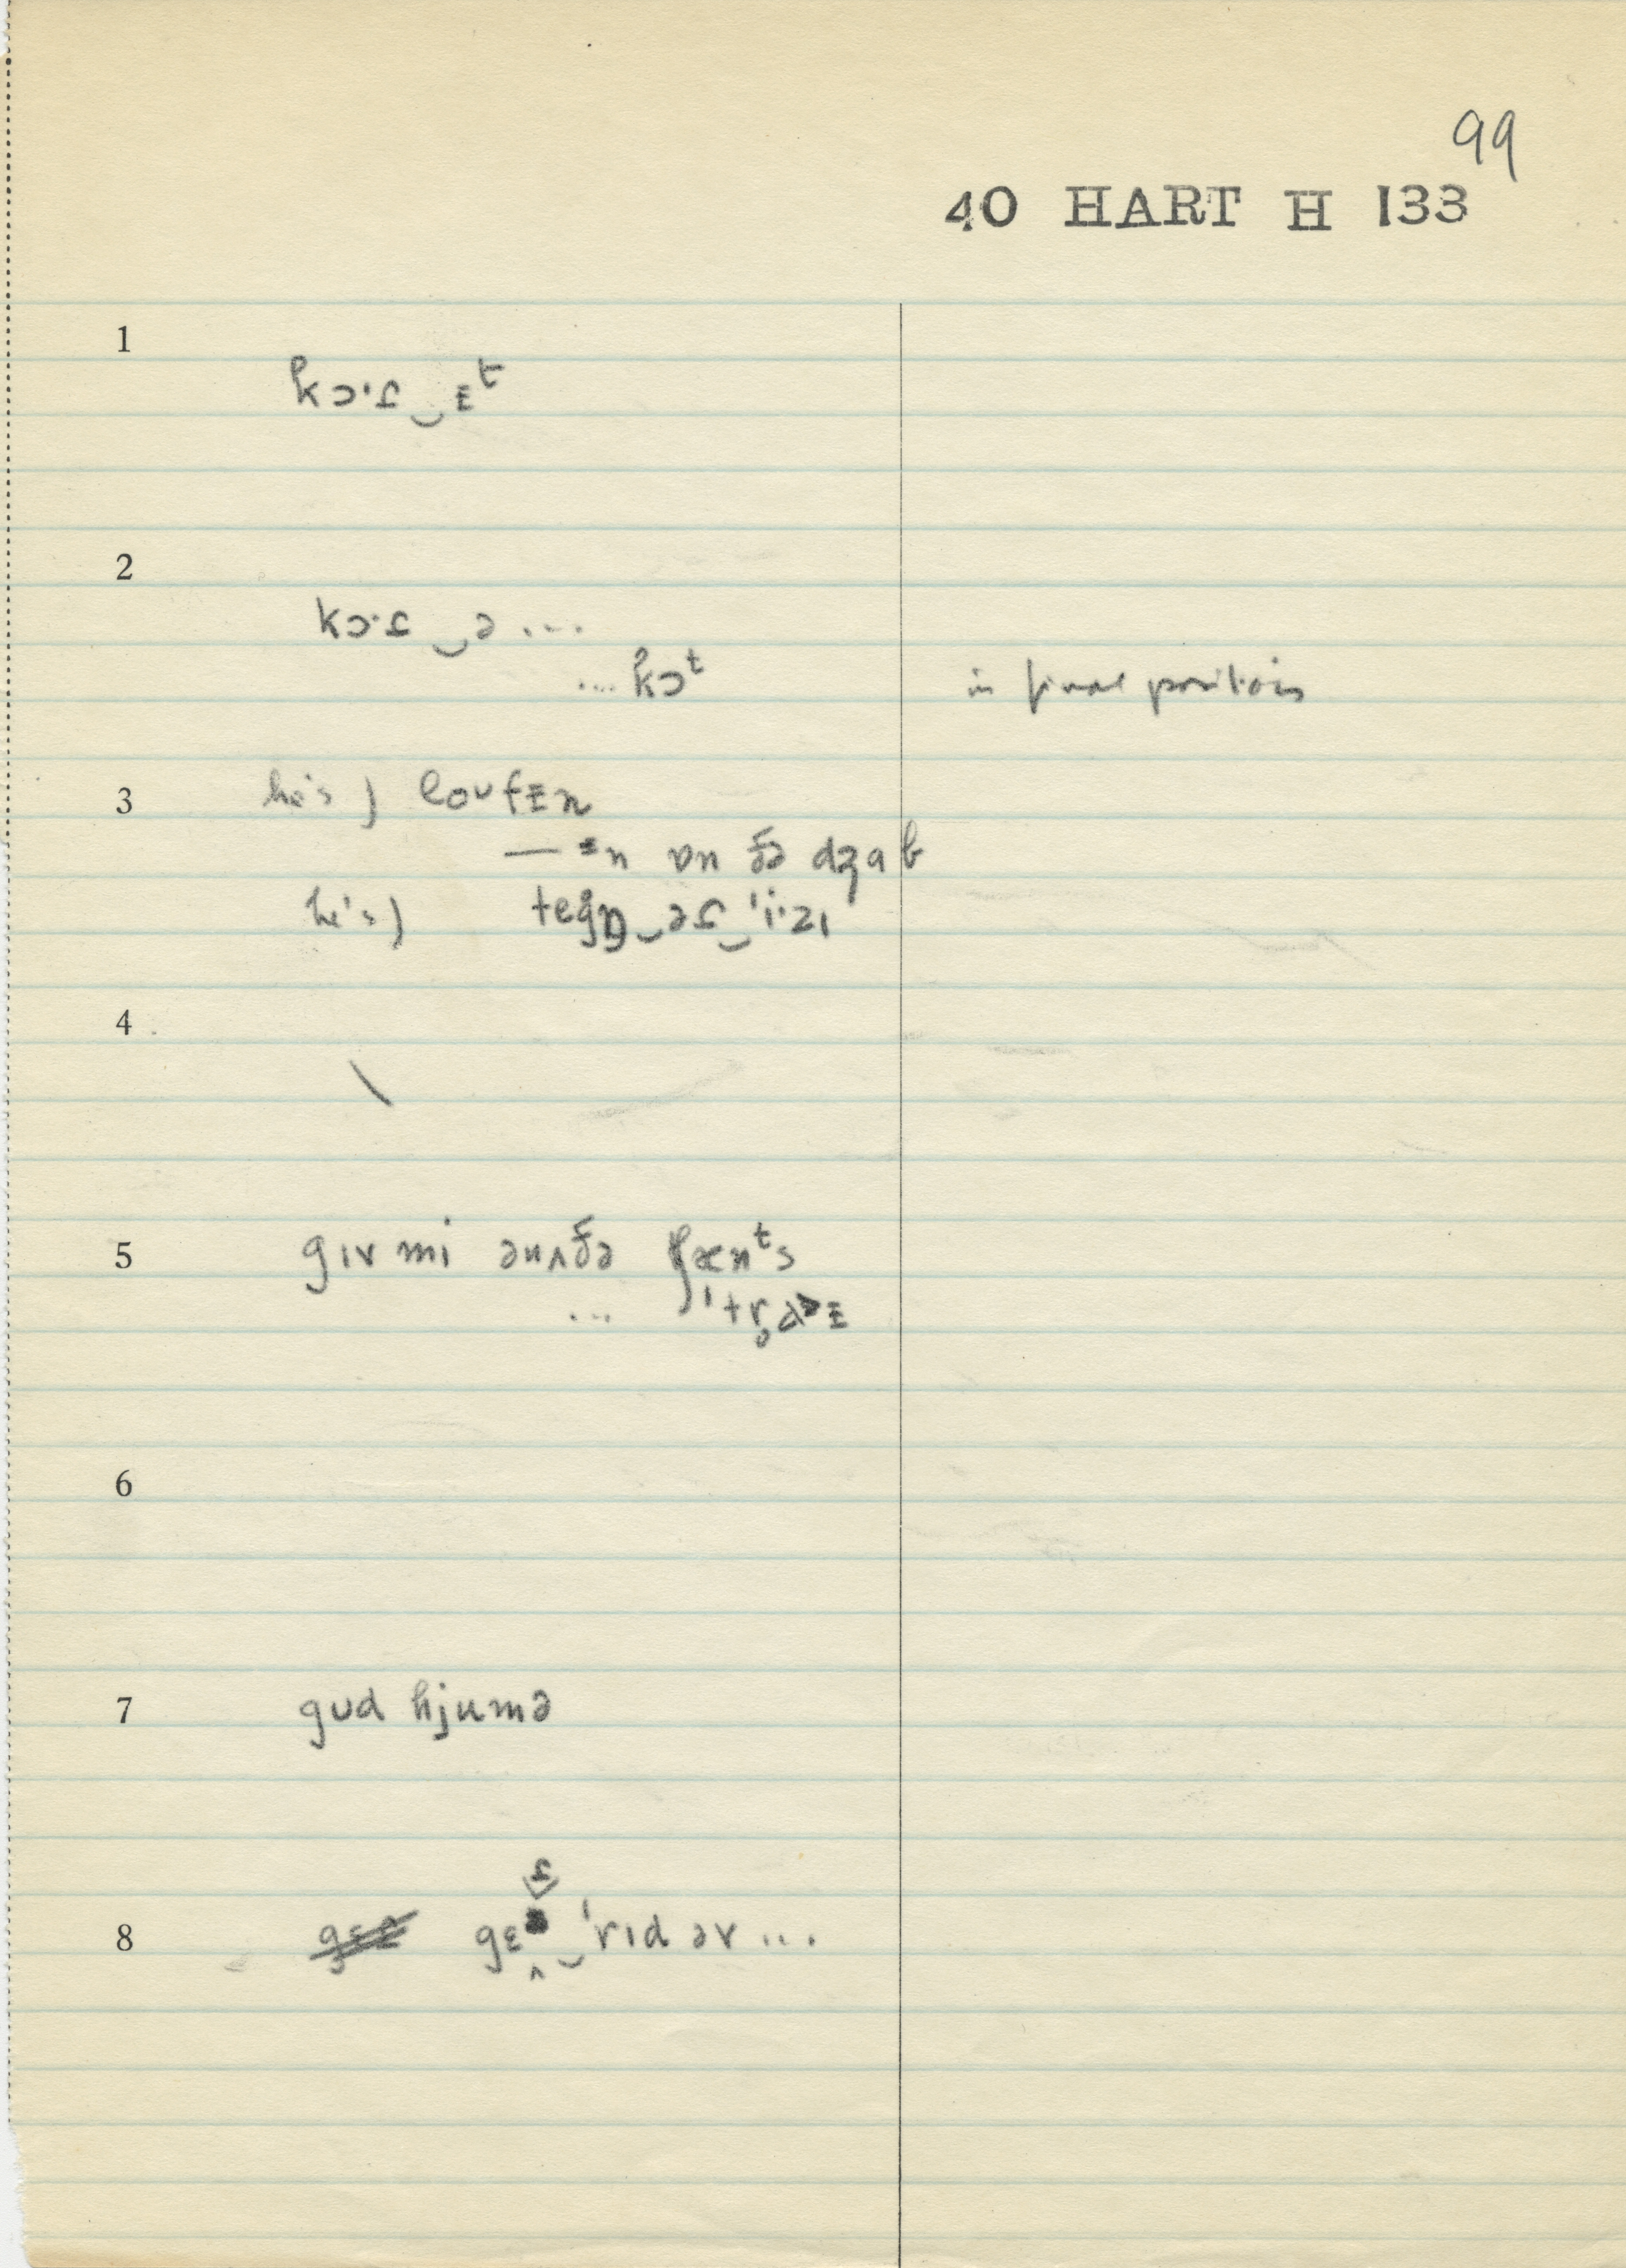 99
40 HART H 133
1
kɔ·ɾ‿ᵻᵗ
2
kɔ·ɾ‿ə ...
.... kɔᵗ in final position
3 he's ) loʊfᵻn
— ᵻn ɒn ðə dʒab
he's ) ‿əɾ‿ˈi·zɪ
4
\
5 gɪv mi ənʌðə tʃænᵗs
... ˈtr̥aᵻ
6
7 gud hjumə
ɾ
8 gɛ‿ˈrɪd əv ...